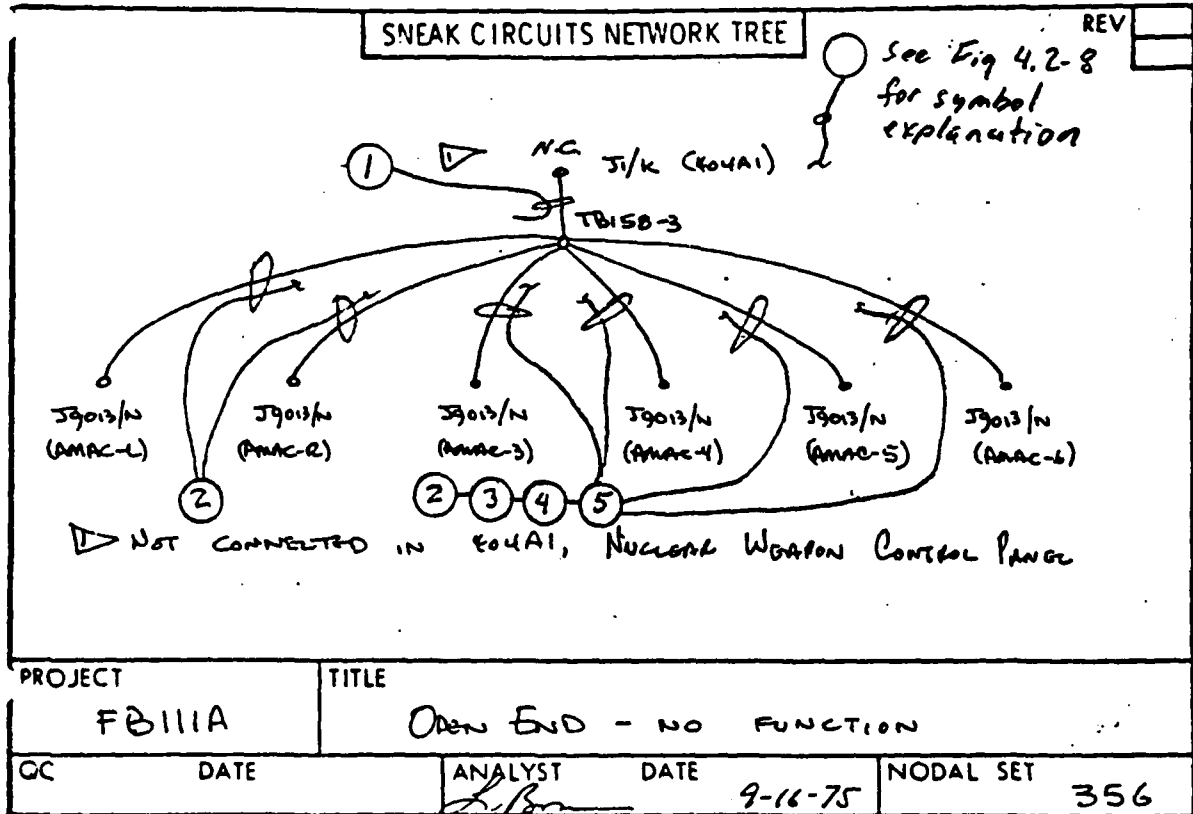 SNEAK CIRCUITS NETWORK TREE
REV
See Fig 4.2-8
for symbol
explanation
1
1
N.C.
J1/K (404A1)
TB158-3
J9013/N
(AMAC-L)
J9013/N
(AMAC-R)
J9013/N
(AMAC-3)
J9013/N
(AMAC-4)
J9013/N
(AMAC-5)
J9013/N
(AMAC-6)
2
2
3
4
5
1 NOT CONNECTED IN 404A1, NUCLEAR WEAPON CONTROL PANEL
PROJECT
FB111A
TITLE
OPEN END - NO FUNCTION
QC
DATE
ANALYST
DATE
9-16-75
NODAL SET
356